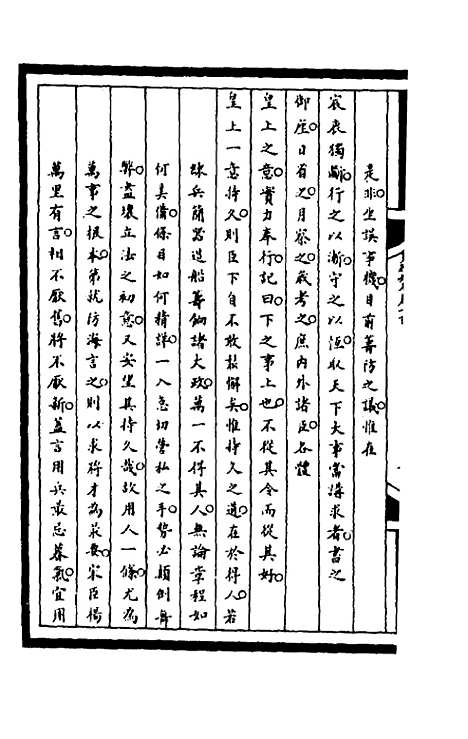 是非坐誤事機目前籌防之議惟在
宸衷獨斷行之以漸守之以恆取天下大事當講求者書之
御座日省之月察之歲考之庶內外諸臣各體
皇上之意實力奉行記曰下之事上也不從其令而從其好
皇上一意持久則臣下自不敢鬆懈矣惟持久之道在於得人若
練兵簡器造船籌餉諸大政萬一不得其人無論章程如
何美備條目如何精詳一入急切營私之手勢必顛倒舞
弊盡壞立法之初意又安望其持久哉故用人一條尤為
萬事之根本第就防海言之則以求將才為最要宋臣楊
萬里有言相不厭舊將不厭新蓋言用兵最忌暮氣宜用